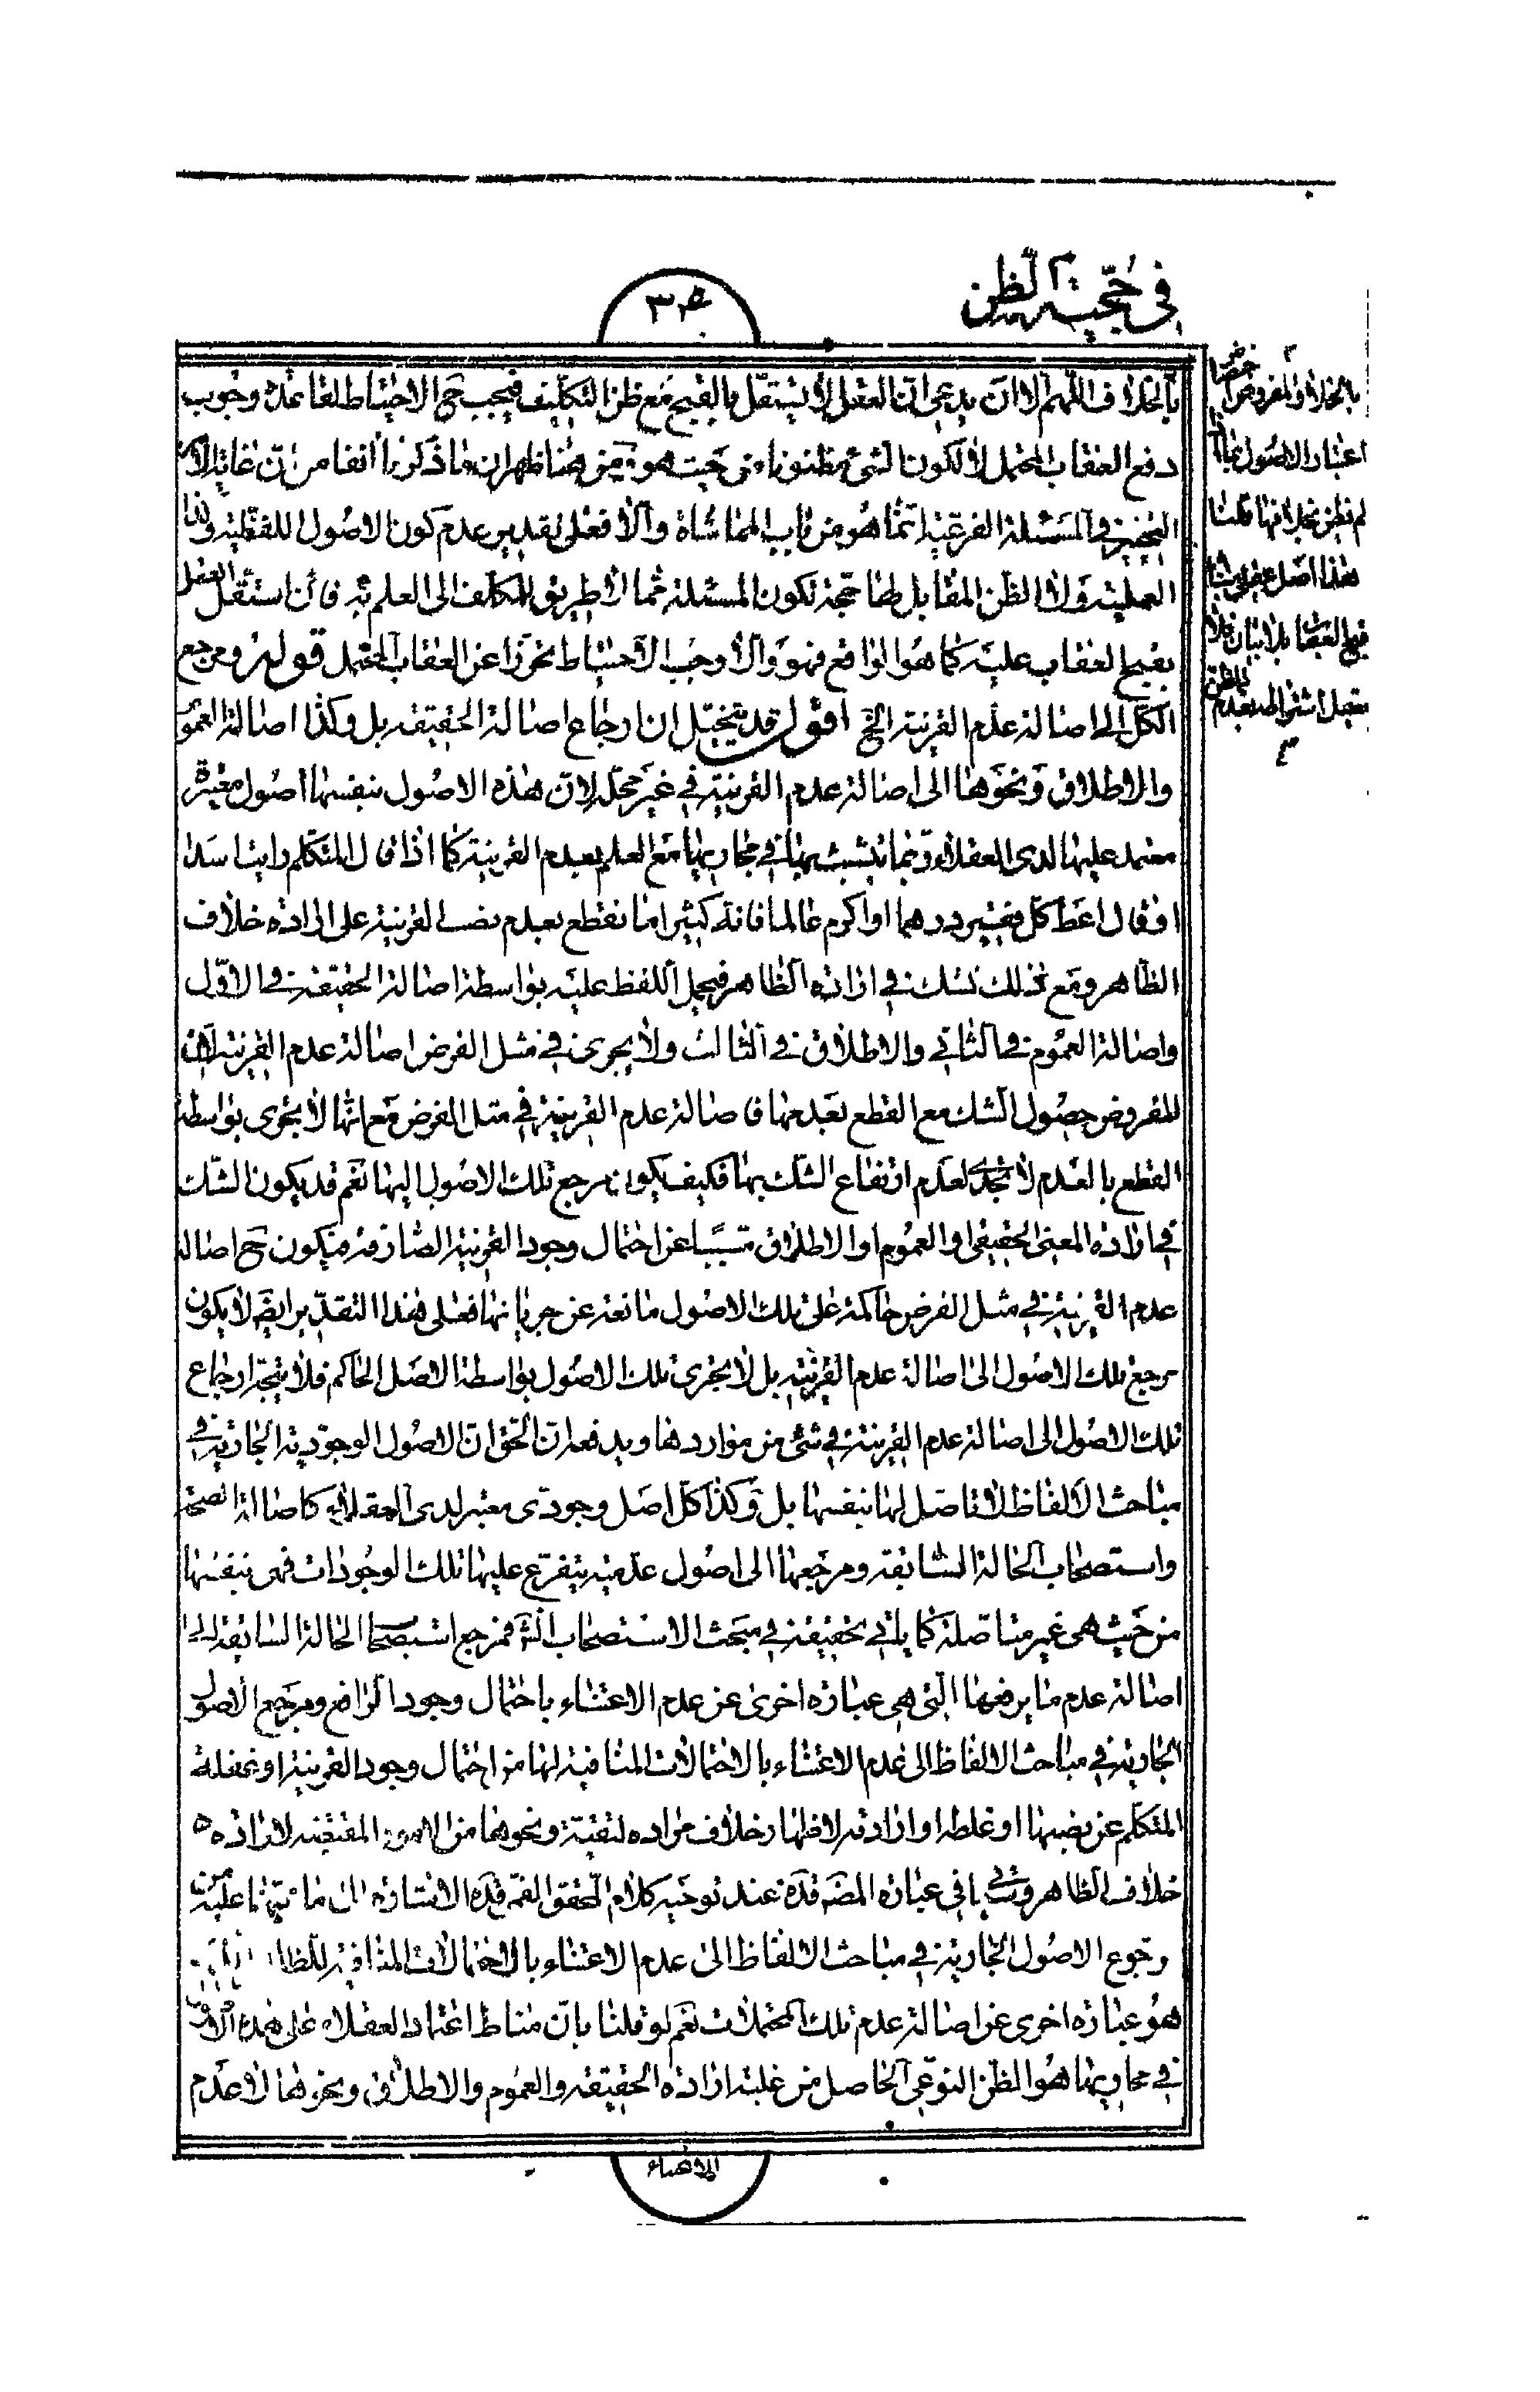 في حجّية الظن
٣۴
بالخلاف اللّهم الا ان يدعى ان العقل لا يستقل بالقبح مع ظن التكليف فيجب ح الاحتياط لقاعدة وجوب
دفع العقاب المحتمل لا لكون الشئ مظنونا من حيث هو ومن هنا ظهر ان ما ذكرنا انفا من ان غاية الامر
التخيير في المسئلة الفرعية انما هو من باب المماشاة والا فعلى تقدير عدم كون الاصول اللفظية ولا
العملية ولا الظن المقابل لها حجة تكون المسئلة مما لا طريق للمكلف الى العلم به فان استقل العقل
بقبح العقاب عليه كما هو الواقع فهو والا وجب الاحتياط تحرزا عن العقاب المحتمل قوله ومرجع
الكل الى اصالة عدم القرينة الخ اقول قد يتخيل ان ارجاع اصالة الحقيقة بل وكذا اصالة العموم
والاطلاق ونحوها الى اصالة عدم القرينة في غير محله لان هذه الاصول بنفسها اصول معتبرة
معتمد عليها لدى العقلاء وربما يتشبث بها في مجاريها مع العلم بعدم القرينة كما اذا قال المتكلم رايت اسدا
او قال اعط كل فقير درهما او اكرم عالما فانه كثيرا ما نقطع بعدم نصب القرينة على ارادة خلاف
الظاهر ومع ذلك نشك في ارادة الظاهر فيحمل اللفظ عليه بواسطة اصالة الحقيقة في الاول
واصالة العموم في الثاني والاطلاق في الثالث ولا يجرى في مثل الفرض اصالة عدم القرينة لان
المفروض حصول الشك مع القطع بعدمها فاصالة عدم القرينة في مثل الفرض مع انها لا تجرى بواسطة
القطع بالعدم لا تجدى لعدم ارتفاع الشك بها فكيف يكون مرجع تلك الاصول اليها نعم قد يكون الشك
في ارادة المعنى الحقيقي او العموم او الاطلاق مسببا عن احتمال وجود القرينة الصارفة فيكون ح اصالة
عدم القرينة في مثل الفرض حاكمة على تلك الاصول مانعة عن جريانها فعلى هذا التقدير ايضا لا يكون
مرجع تلك الاصول الى اصالة عدم القرينة بل لا يجرى تلك الاصول بواسطة الاصل الحاكم فلا يتجه ارجاع
تلك الاصول الى اصالة عدم القرينة في شئ من مواردها ويدفعه ان الحق ان الاصول الوجودية الجارية في
مباحث الالفاظ لا تاصّل لها بنفسها بل وكذا كل اصل وجودى معتبر لدى العقلاء كاصالة الصحة
واستصحاب الحالة السابقة ومرجعها الى اصول عدمية يتفرع عليها تلك الوجودات فهى بنفسها
من حيث هى غير متاصلة كما ياتي تحقيقه في مبحث الاستصحاب انش فمرجع استصحاب الحالة السابقة الى
اصالة عدم ما يرفعها التى هى عبارة اخرى عن عدم الاعتناء باحتمال وجود الرافع ومرجع الاصول
الجارية في مباحث الالفاظ الى عدم الاعتناء بالاحتمالات المنافية لها من احتمال وجود القرينة او غفلة
المتكلم عن نصبها او غلطه او ارادته لاظهار خلاف مراده لتقية ونحوها من الامور المقتضية لارادة
خلاف الظاهر وسياتي في عبارة المصه قدّه عند توجيه كلام المحقق القمي قدّه الاشارة الى ما نبّهنا عليه من
رجوع الاصول الجارية في مباحث الالفاظ الى عدم الاعتناء بالاحتمالات المنافية للظاهر
هو عبارة اخرى عن اصالة عدم تلك المحتملات نعم لو قلنا بان مناط اعتماد العقلاء على هذه الاصول
في مجاريها هو الظن النوعي الحاصل من غلبة ارادة الحقيقة والعموم والاطلاق ونحوها لا عدم
الاعتناء
بالخلاف والمفروض
اعتبار الاصول
لم نظن بخلافها قلنا
هذا اصل عقلي
قبح العقاب بلا بيان فلا
يعقل اشتراطه بعدم الظن